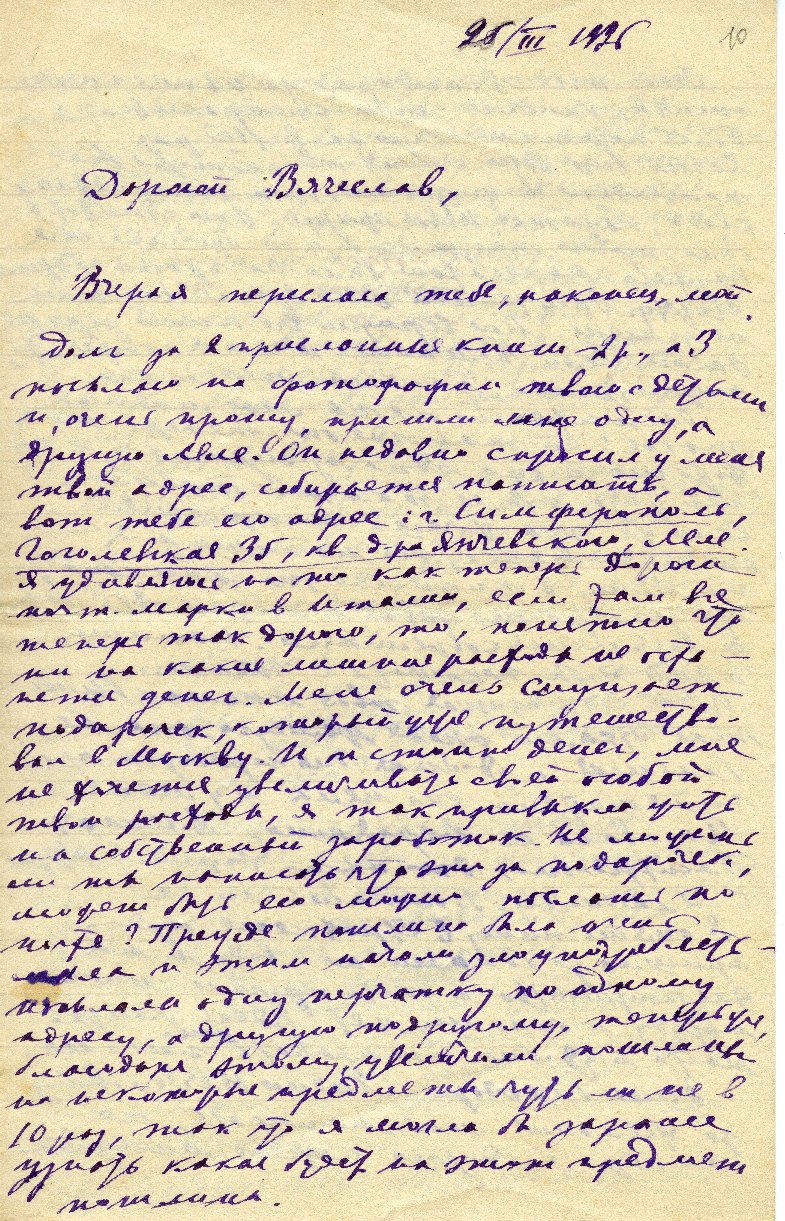 25/III 1926 10
Дорогой Вячеслав,
Вчера я переслала тебе, наконец, мой
долг за 2 присланныя книги 2 р., а 3
посылаю на фотографии твои с детьми
и, очень прошу, пришли мне одну, а
другую Леле. Он недавно спросил у меня
твой адрес, собирается написать, а
вот тебе его адрес: г. Симферополь,
Гоголевская 35, кв. д-ра Янчевского, Леле.
Я удивляюсь на то как теперь дороги
почт. марки в Италии, если там все
теперь так дорого, то, понятно что
ни на какие лишние расходы не оста-
нется денег. Меня очень смущает
подарочек, который уже путешество-
вал в Москву. И он стоит денег, мне
не хочется увеличивать своей особой
твои расходы, я так привыкла жить
на собственный заработок. Не можешь
ли ты написать что это за подарочек,
может быть его можно послать по
почте? Прежде пошлина была очень
мала и этим начали злоупотреблять -
посылали одну перчатку по одному
адресу, а другую по другому, теперь уж,
благодаря этому, увеличили пошлины
на некоторые предметы чуть ли не в
10 раз, так что я могла бы заранее
узнать какая будет на этот предмет
пошлина.